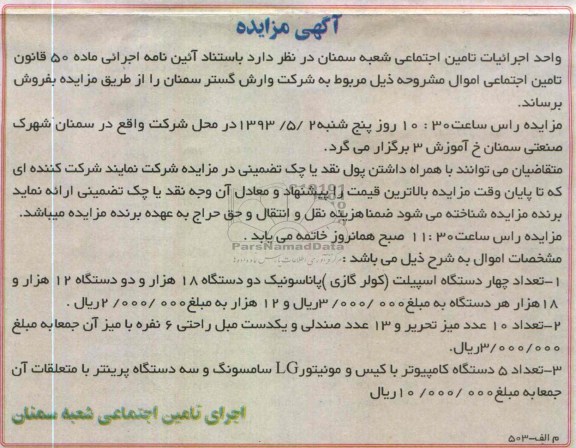 آگهی مزایده
واحد اجرائیات تامین اجتماعی شعبه سمنان در نظر دارد باستناد آئین نامه اجرائی ماده ۵۰ قانون
تامین اجتماعی اموال مشروحه ذیل مربوط به شرکت وارش گستر سمنان را از طریق مزایده بفروش
برساند.
مزایده راس ساعت۳۰ : ۱۰ روز پنج شنبه۲ /۵/ ۱۳۹۳در محل شرکت واقع در سمنان شهرک
صنعتی سمنان خ آموزش ۳ برگزار می گرد.
متقاضیان می توانند با همراه داشتن پول نقد یا چک تضمینی در مزایده شرکت نمایند شرکت کننده ای
که تا پایان وقت مزایده بالاترین قیمت را پیشنهاد و معادل آن وجه نقد یا چک تضمینی ارائه نماید
برنده مزایده شناخته می شود ضمناهزینه نقل و انتقال و حق حراج به عهده برنده مزایده میباشد.
مزایده راس ساعت۳۰ :۱۱ صبح همانروز خاتمه می یابد .
ParsNamadData
مشخصات اموال به شرح ذیل می باشد :
۱-تعداد چهار دستگاه اسپیلت (کولر گازی )پاناسونیک دو دستگاه ۱۸ هزار و دو دستگاه ۱۲ هزار و
۱۸هزار هر دستگاه به مبلغ۰۰۰/ ۰۰۰/ ۳ریال و ۱۲ هزار به مبلغ۰۰۰/ ۰۰۰/ ۲ریال .
۲-تعداد ۱۰ عدد میز تحریر و ۱۳ عدد صندلی و یکدست مبل راحتی ۶ نفره با میز آن جمعابه مبلغ
۳/۰۰۰/۰۰۰ریال.
۳-تعداد ۵ دستگاه کامپیوتر با کیس و مونیتورLG سامسونگ و سه دستگاه پرینتر با متعلقات آن
جمعابه مبلغ۰۰۰/ ۰۰۰/ ۱۰ریال
اجرای تامین اجتماعی شعبه سمنان
م الف-۵۰۳